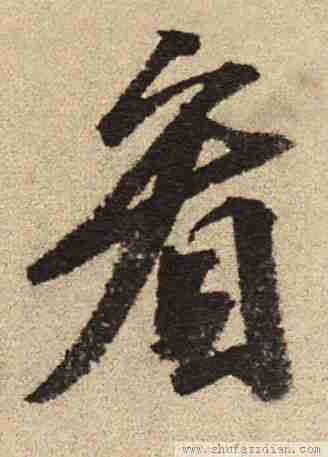 看
www.shufazidian.com